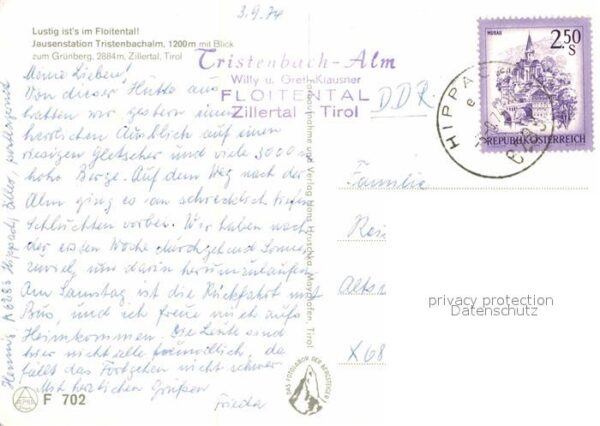 3.9.74
Lustig ist's im Floitental!
Jausenstation Tristenbachalm, 1200m mit Blick
zum Grünberg, 2884m, Zillertal, Tirol
Tristenbach-Alm
Willy u. Greth Klausner
FLOITENTAL
Zillertal - Tirol
Meine Lieben!
Von dieser Hütte aus
hatten wir gestern einen
herrlichen Ausblick auf einen
riesigen Gletscher und viele 3000 m
hohe Berge. Auf dem Weg nach der
Alm ging es an schrecklich tiefen
Schluchten vorbei. Wir haben nach
der ersten Woche durchgehend Sonne,
zuviel, um darin herumzulaufen.
Am Samstag ist die Rückfahrt mit
Bus, und ich freue mich aufs
Heimkommen. Die Leute sind
hier nicht alle freundlich, da
fällt das Fortgehen nicht schwer.
Mit herzlichen Grüßen
Frieda
Hennig A 6283 Hippach/Ziller,
F 702
Aufnahme und Verlag Hans Hruschka, Mayrhofen, Tirol
DAS FOTOLABOR DER BERGSTEIGER
MURAU
2.50
S
REPUBLIK ÖSTERREICH
HIPPACH
e
6283
DDR
Familie
Rei
Altst
X 68
privacy protection
Datenschutz